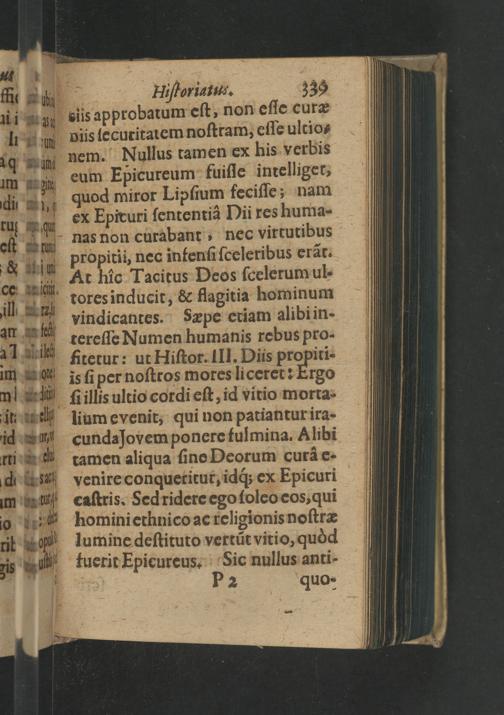 Historiatus. 339
diis approbatum est, non esse curæ
diis securitatem nostram, esse ultio-
nem. Nullus tamen ex his verbis
eum Epicureum fuisse intelliget,
quod miror Lipsium fecisse; nam
ex Epicuri sententiâ Dii res huma-
nas non curabant, nec virtutibus
propitii, nec infensi sceleribus erāt.
At hîc Tacitus Deos scelerum ul-
tores inducit, & flagitia hominum
vindicantes. Sæpe etiam alibi in-
teresse Numen humanis rebus pro-
fitetur: ut Histor. III. Diis propiti-
is si per nostros mores liceret: Ergo
si illis ultio cordi est, id vitio morta-
lium evenit, qui non patiantur ira-
cunda Jovem ponere fulmina. Alibi
tamen aliqua sine Deorum curâ e-
venire conqueritur, idq; ex Epicuri
castris. Sed ridere ego soleo eos, qui
homini ethnico ac religionis nostræ
lumine destituto vertūt vitio, quòd
fuerit Epicureus. Sic nullus anti-
P 2 quo-